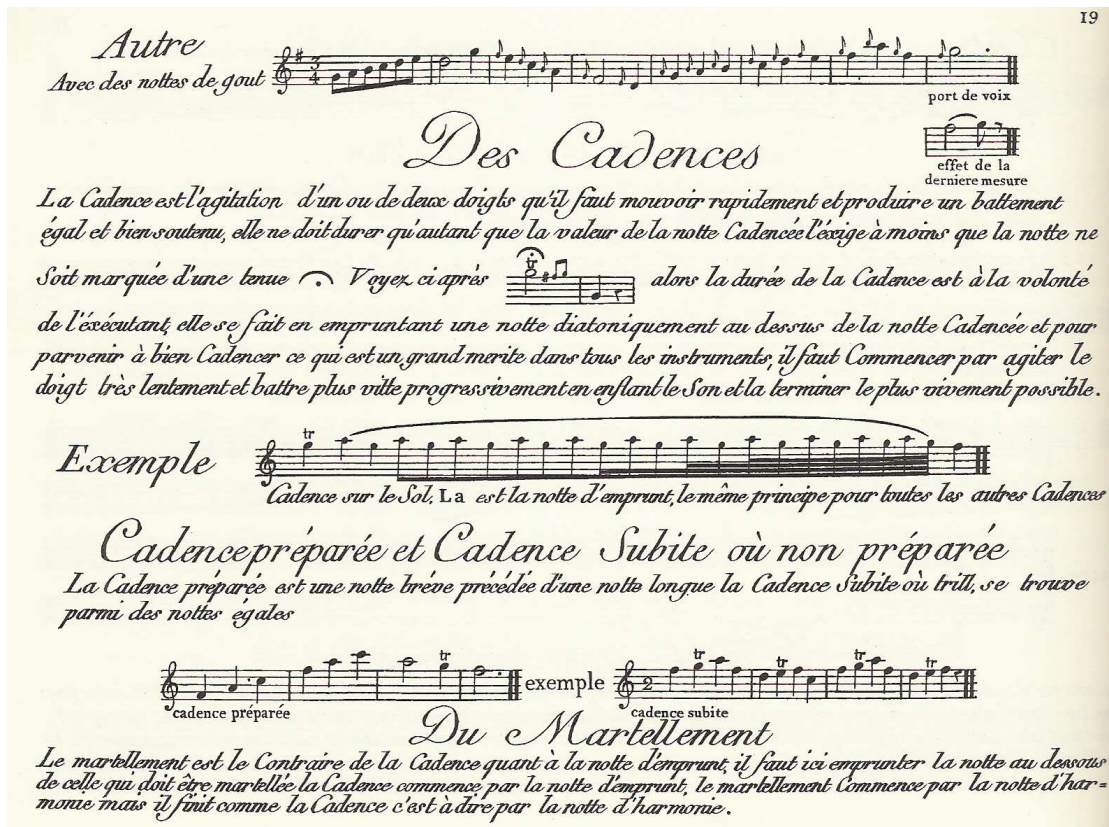 19
Autre
Avec des nottes de gout
port de voix
Des Cadences
effet de la
derniere mesure
La Cadence est l'agitation d'un ou de deux doigts qu'il faut mouvoir rapidement et produire un battement
égal et bien soutenu, elle ne doit durer qu'autant que la valeur de la notte Cadencée l'éxige à moins que la notte ne
Soit marquée d'une tenue Voyez ci après tr alors la durée de la Cadence est à la volonté
de l'éxécutant, elle se fait en empruntant une notte diatoniquement au dessus de la notte Cadencée et pour
parvenir à bien Cadencer ce qui est un grand merite dans tous les instruments, il faut Commencer par agiter le
doigt très lentement et battre plus vitte progressivement en enflant le Son et la terminer le plus vivement possible.
tr
Exemple
Cadence sur le Sol, La est la notte d'emprunt, le même principe pour toutes les autres Cadences
Cadence préparée et Cadence Subite où non préparée
La Cadence préparée est une notte bréve précédée d'une notte longue la Cadence Subite où trill, se trouve
parmi des nottes égales
tr tr tr tr tr
exemple 2
cadence préparée cadence subite
Du Martellement
Le martellement est le Contraire de la Cadence quant à la notte d'emprunt, il faut ici emprunter la notte au dessous
de celle qui doit être martellée la Cadence commence par la notte d'emprunt, le martellement Commence par la notte d'har=
monie mais il finit comme la Cadence c'est à dire par la notte d'harmonie.